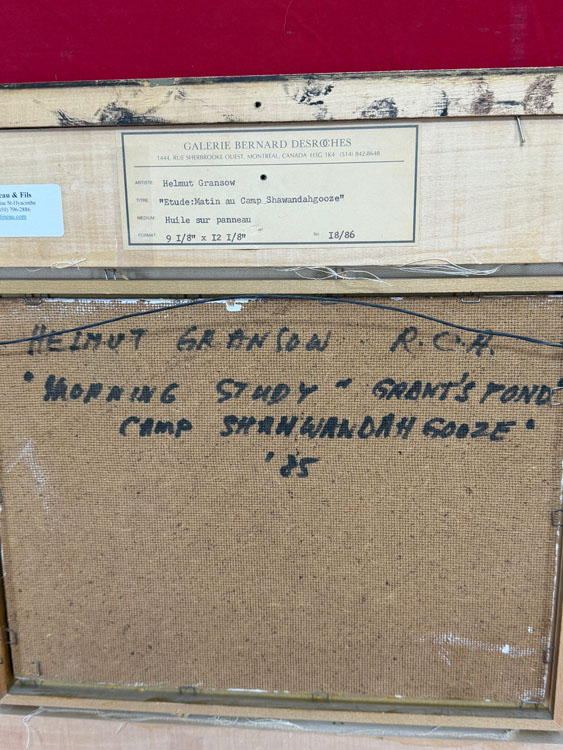 GALERIE BERNARD DESROCHES
1444, RUE SHERBROOKE OUEST, MONTRÉAL, CANADA H3G 1K4 (514) 842-8648
ARTISTE: Helmut Gransow
TITRE: "Etude:Matin au Camp Shawandahgooze"
MEDIUM: Huile sur panneau
FORMAT: 9 1/8" x 12 1/8" No 18/86
eau & Fils
St-Hyacinthe
796-2886
HELMUT GRANSOW R.C.A.
"MORNING STUDY - GRANT'S POND"
CAMP SHAHWANDAHGOOZE"
'85